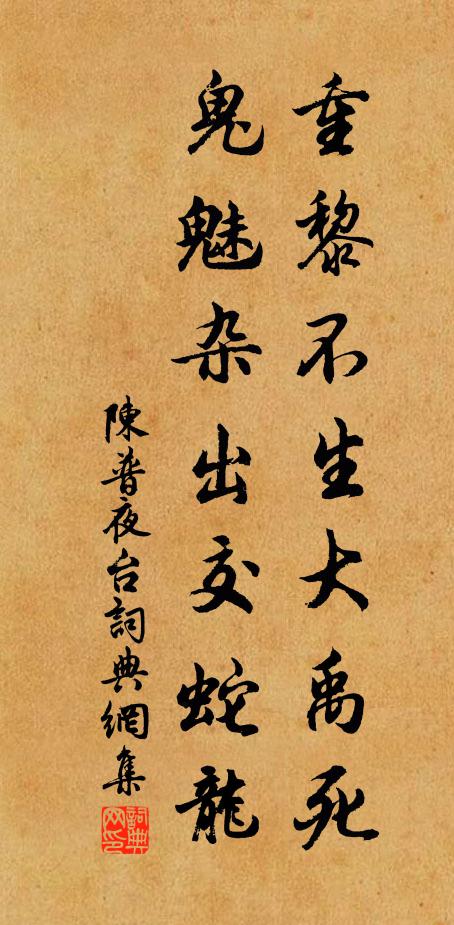 重黎不生大禹死
鬼魅杂出交蛇龍
陳普夜台詞典網集
詞典网印